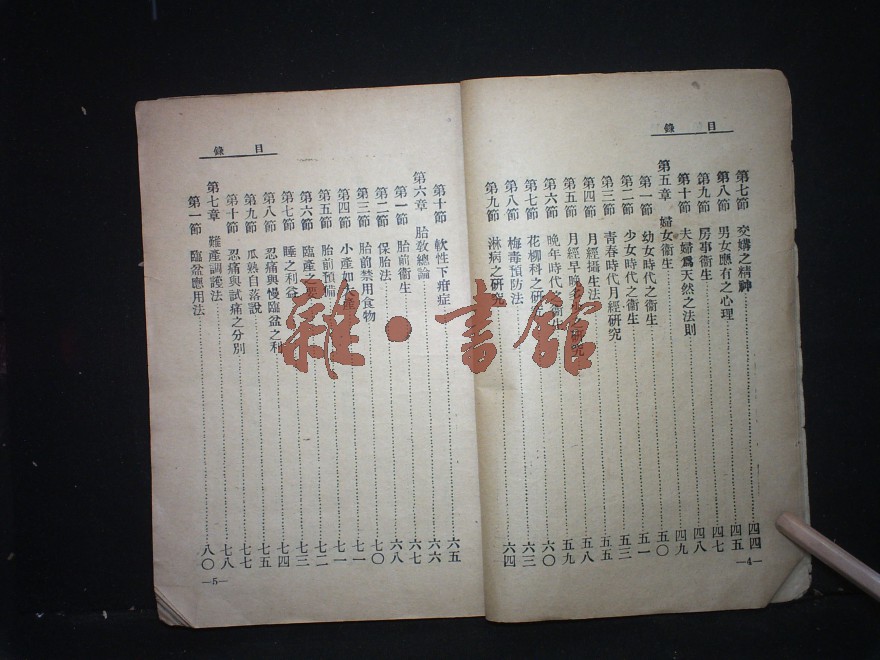 目錄
第七節 交媾之精神 四四
第八節 男女應有之心理 四五
第九節 房事衞生 四七
第十節 夫婦爲天然之法則 四八
第五章 婦女衞生 四九
第一節 幼女時代之衞生 五〇
第二節 少女時代之衞生 五一
第三節 青春時代月經研究 五三
第四節 月經攝生法 五五
第五節 月經早晚 研究 五八
第六節 晚年時代之衞生 五九
第七節 花柳科之研究 六〇
第八節 梅毒預防法 六三
第九節 淋病之研究 六四
—4—
目錄
第十節 軟性下疳症 六五
第六章 胎教總論 六六
第一節 胎前衞生 六七
第二節 保胎法 六八
第三節 胎前禁用食物 七〇
第四節 小產如大產 七一
第五節 胎前預備 七一
第六節 臨產之 七二
第七節 睡之利益 七三
第八節 忍痛與慢臨盆之利 七四
第九節 瓜熟自落說 七五
第十節 忍痛與試痛之分別 七七
第七章 難產調護法 七八
第一節 臨盆應用法 八〇
—5—
雜·書館